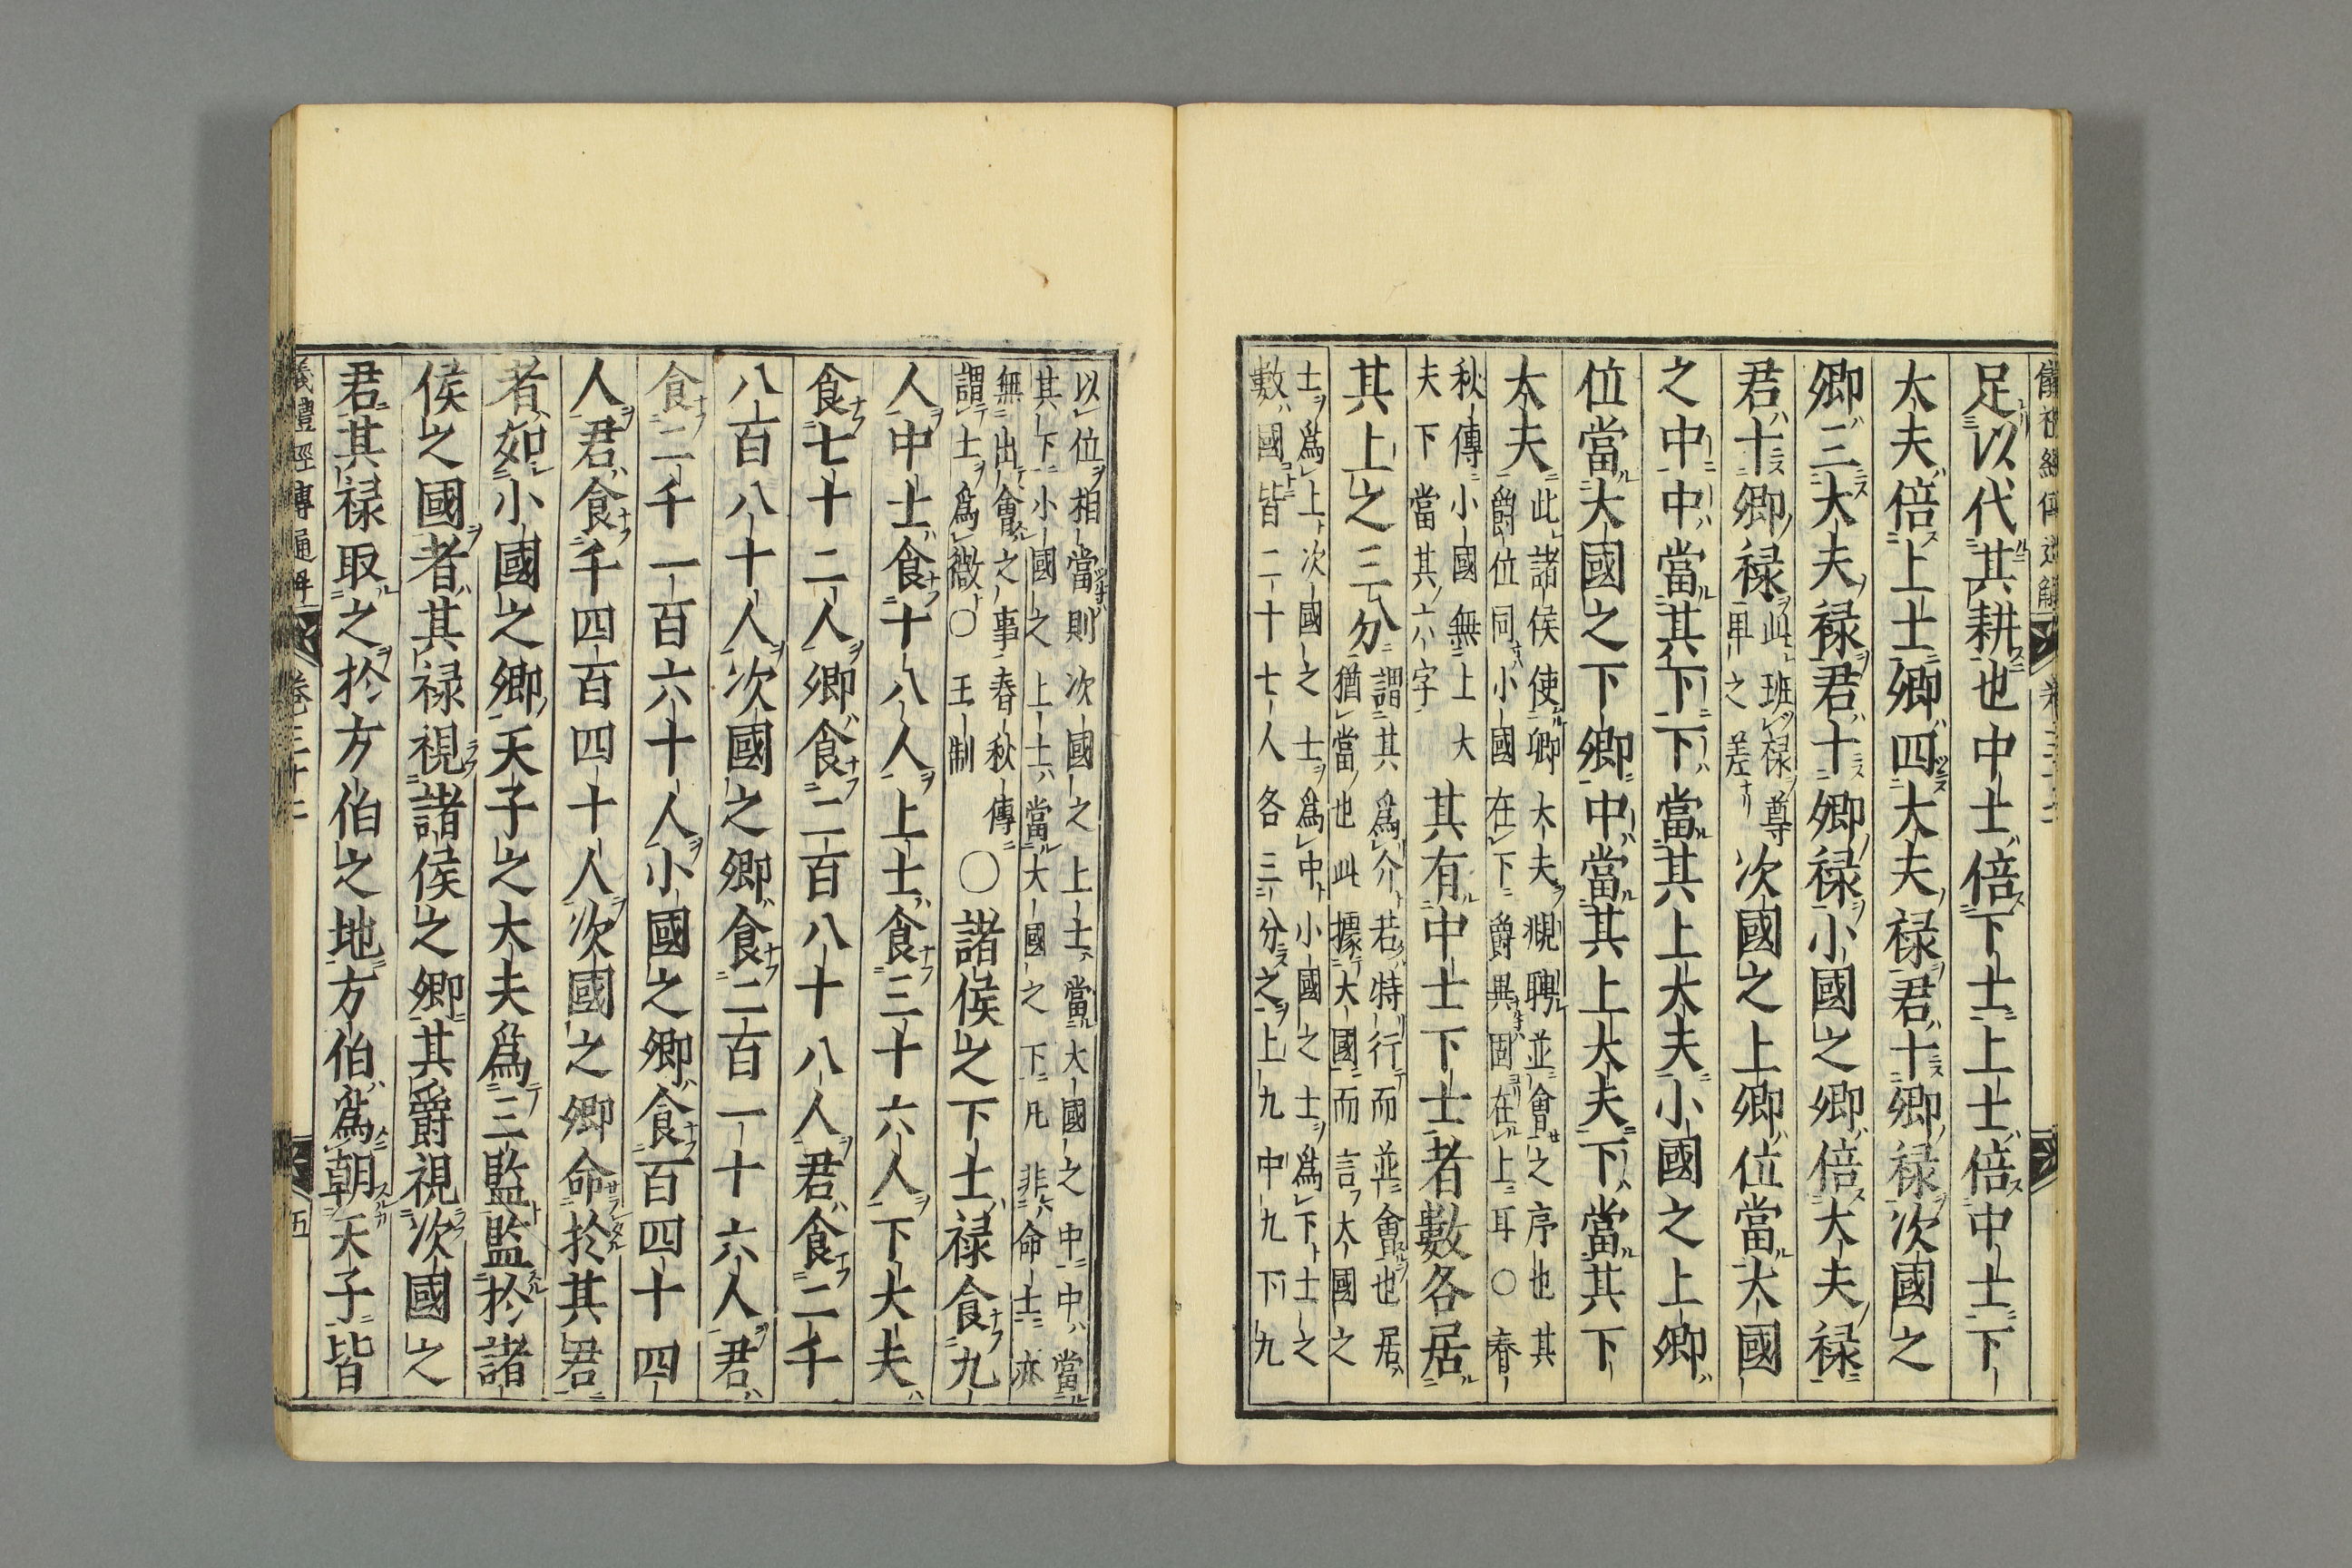 足以代其耕也中士倍下士上士倍中士下
大夫倍上士卿四大夫禄君十卿禄次國之
卿三大夫禄君十卿禄小國之卿倍大夫禄
君十卿禄此班禄尊
卑之差次國之上卿位當大國
之中中當其下下當其上大夫小國之上卿
位當大國之下卿中當其上大夫下當其下
大夫此諸侯使卿大夫覜聘並會之序也其
爵位同小國在下爵異固在上耳〇春
秋傳小國無上大
夫下當其六字其有中士下士者數各居
其上之三分謂其爲介若特行而並會也居
猶當也此據大國而言大國之
士爲上次國之士爲中小國之士爲下士之
數國皆二十七人各三分之上九中九下九
以位相當則次國之上士當大國之中中當
其下小國之上士當大國之下凡非命士亦
無出會之事春秋傳
謂士爲微〇王制〇諸侯之下士禄食九
人中士食十八人上士食三十六人下大夫
食七十二人卿食二百八十八人君食二千
八百八十人次國之卿食二百一十六人君
食二千一百六十人小國之卿食百四十四
人君食千四百四十人次國之卿命於其君
者如小國之卿天子之大夫爲三監監於諸
侯之國者其禄視諸侯之卿其爵視次國之
君其禄取之於方伯之地方伯爲朝天子皆
儀禮經傳通解 卷三十二 五